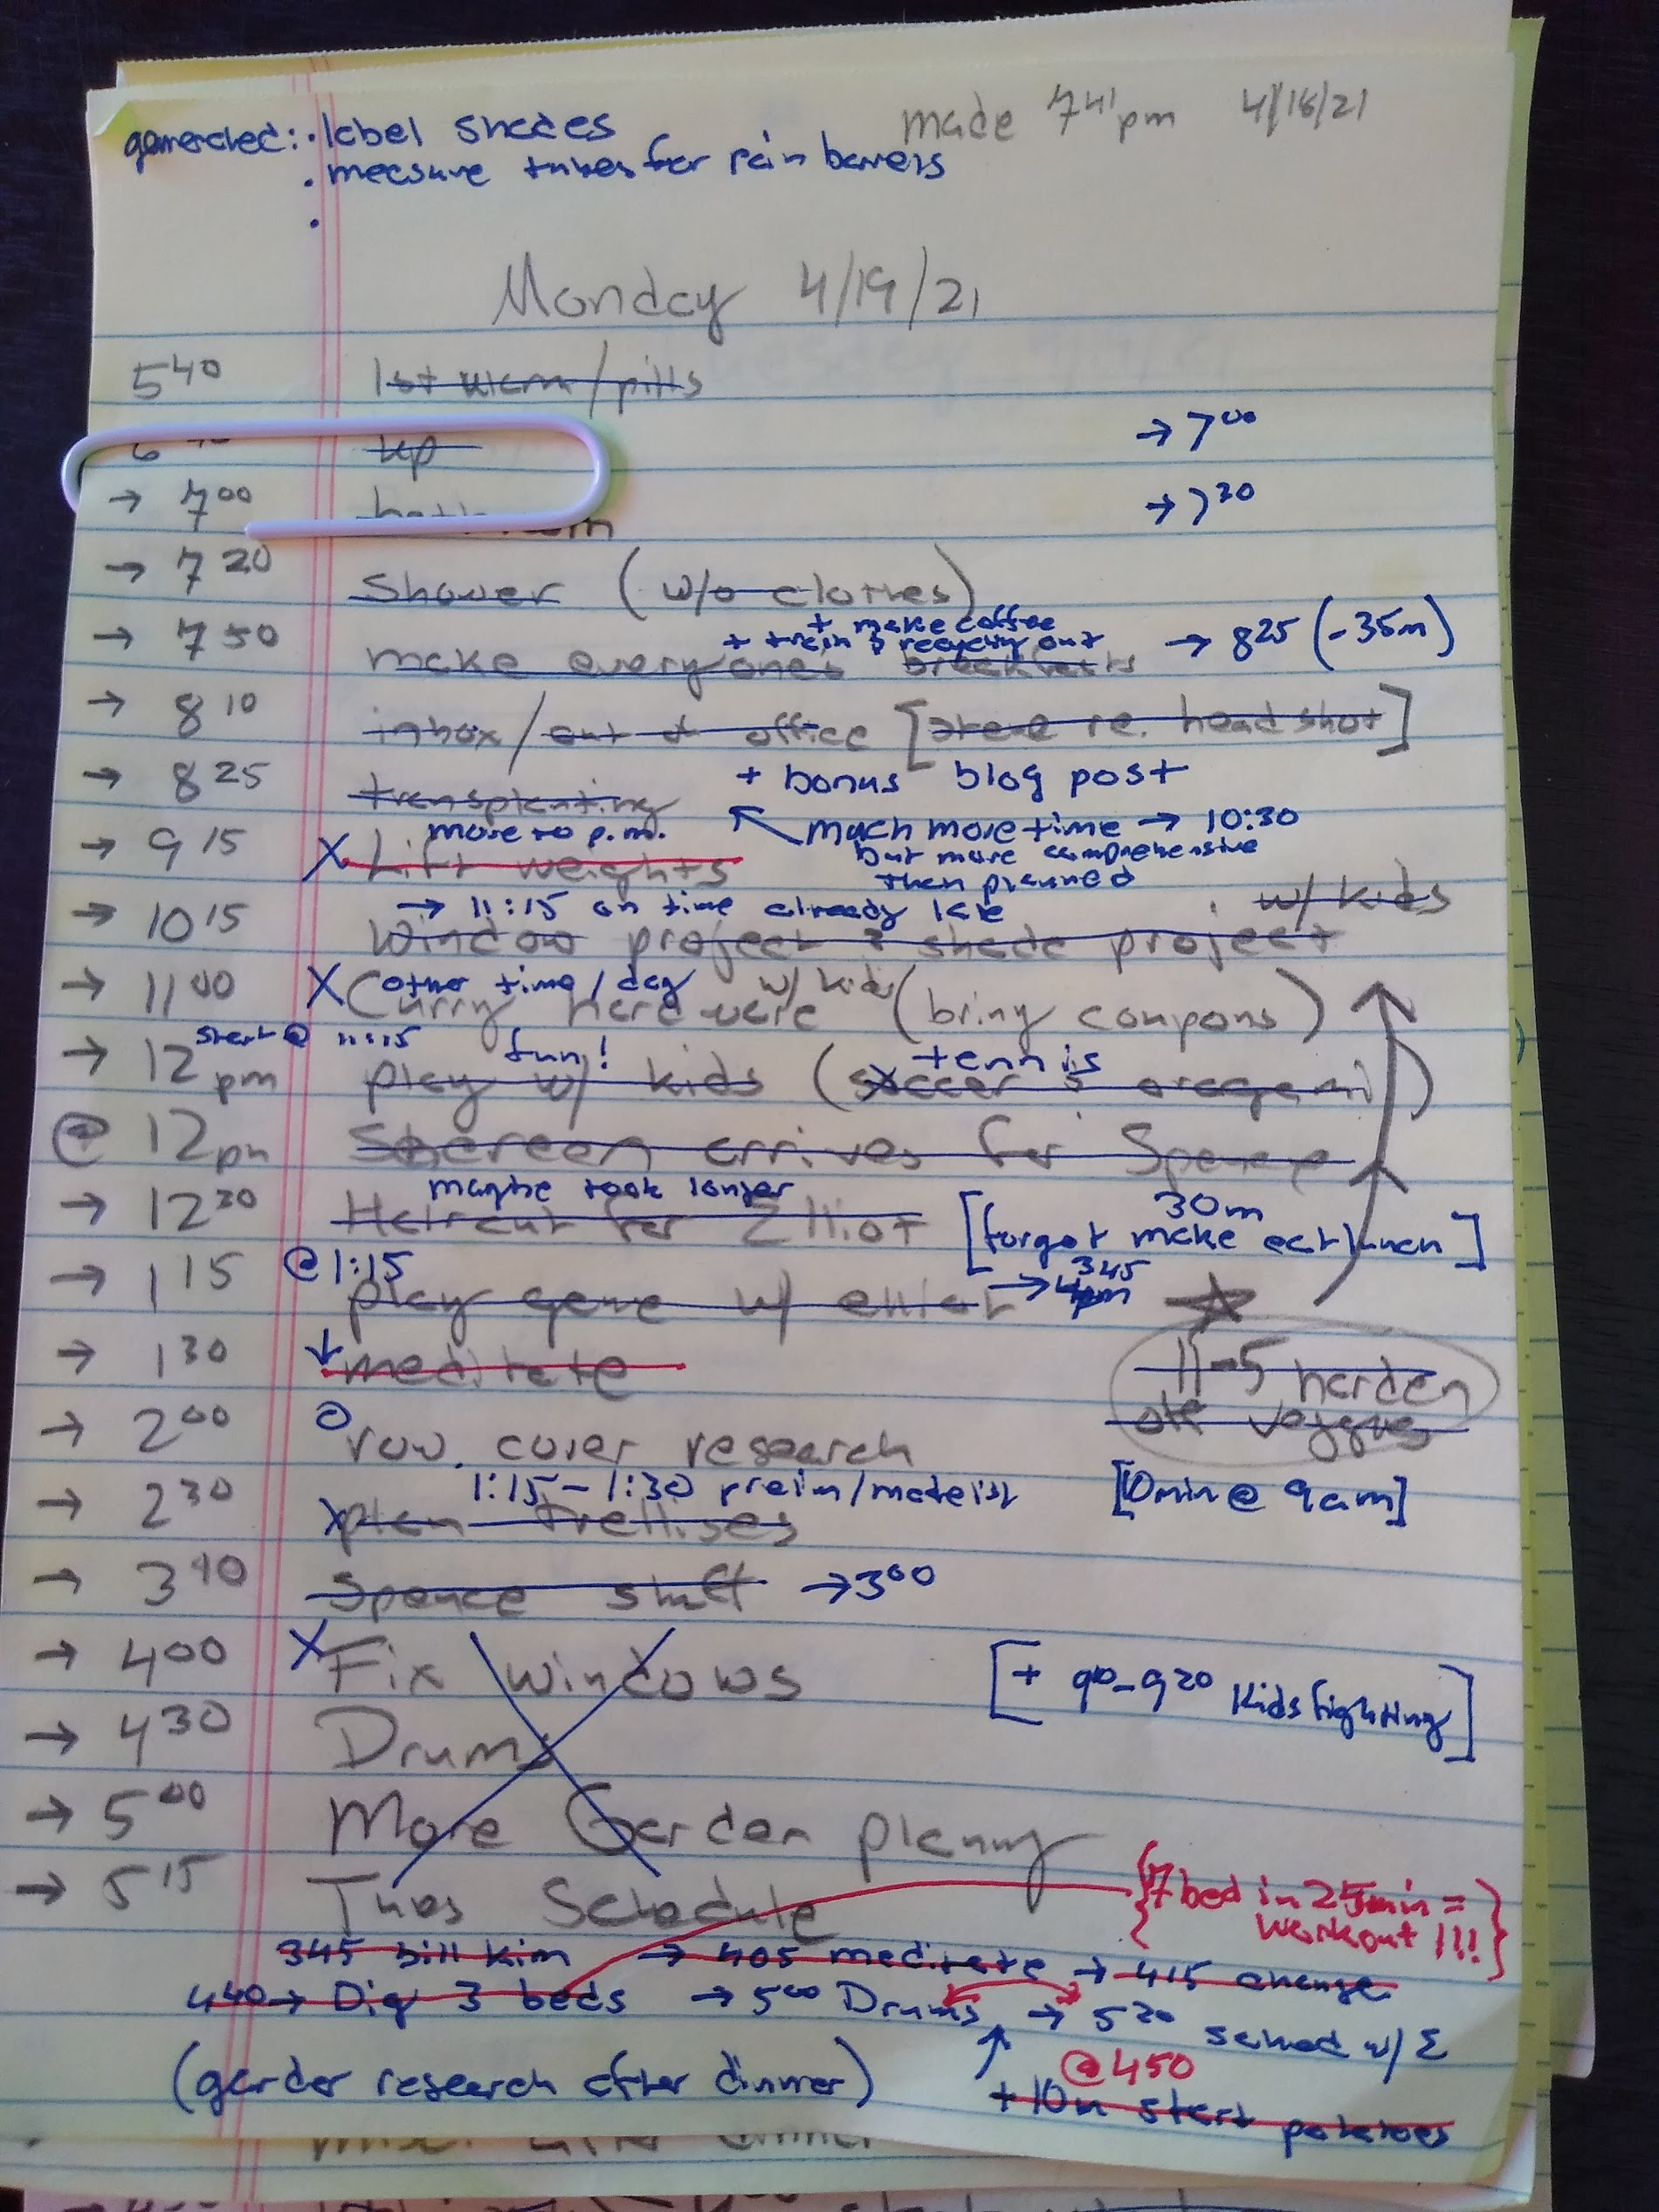 label shades
made 7 41 pm 4/18/21
• measure tubes for rain barrels
•
Monday 4/19/21
5 40 1st alarm/pills
up → 7 00
→ 7 00 → 7 30
→ 7 20 shower (w/o clothes)
+ make coffee
+ & recycling out
→ 7 50 make everyones breakfasts → 8 25 (-35m)
→ 8 10 inbox/out of office [ re. head shot]
→ 8 25 transplanting + bonus blog post
move to p.m. ↖ much more time → 10:30
→ 9 15 X Lift weights but more comprehensive
then planned
→ 11:15 on time already late w/ kids
→ 10 15 Window project & shade project
other time/day w/ kids
→ 11 00 X Curry hardware (bring coupons)
start @ 11:15 fun! tennis
→ 12 pm play w/ kids (soccer & oragami)
@ 12 pm arrives for
maybe took longer 30m
→ 12 30 Haircut for Elliot [forgot make eat lunch]
@1:15 3 45
→ 1 15 play game w/ elliot → 4pm
→ 1 30 ↓ meditate 11-5 harden
off veggies
→ 2 00 row cover research
1:15-1:30 prelim/ [10min @ 9am]
→ 2 30 X plan trellises
→ 3 40 Spence shift → 3 00
→ 4 00 X Fix windows [+ 9 10-9 20 kids fighting]
→ 4 30 Drums
→ 5 00 More Garden planng
→ 5 15 Tues Schedule {7 bed in 25min =
workout !!!}
345 bill kim → 405 meditate → 415 change
440 → Dig 3 beds → 5 00 Drums → 5 20 sched w/ Σ
@450
(garden research after dinner) +10m start potatoes